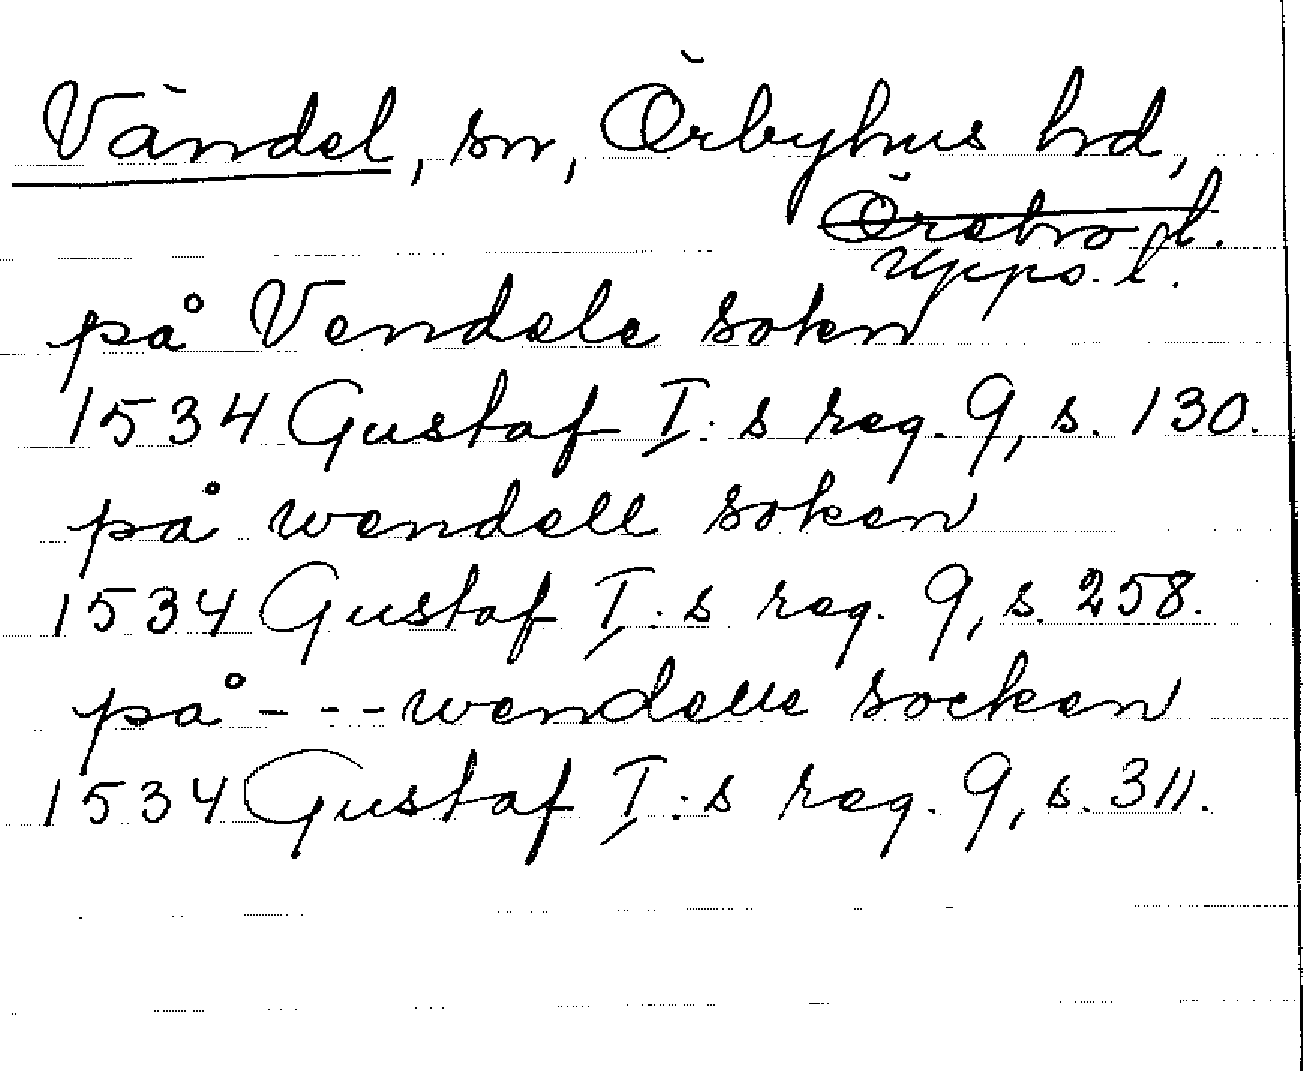 Vändel, sn, Örbyhus hd,
Örebro l.
Upps. l.
på Vendele sokn
1534 Gustaf I:s reg. 9, s. 130.
på wendell soken
1534 Gustaf I:s reg. 9, s. 258.
på - - - wendelle socken
1534 Gustaf I:s reg. 9, s. 311.